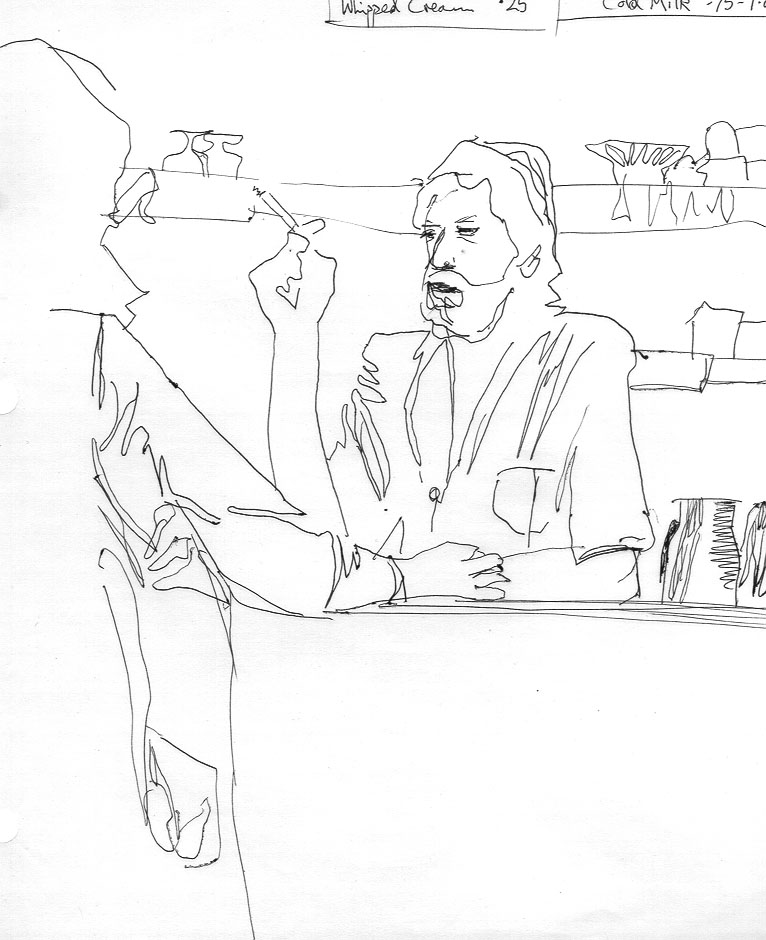 Whipped Cream .25
Cold Milk -75-1.0